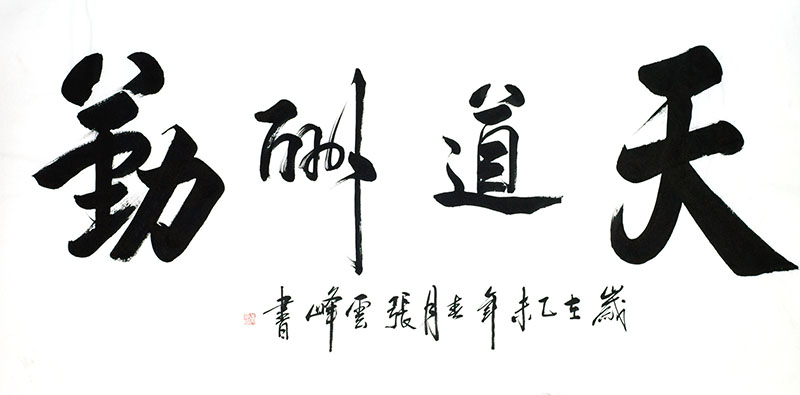 天道酬勤
歲在乙未年春月張雲峰書